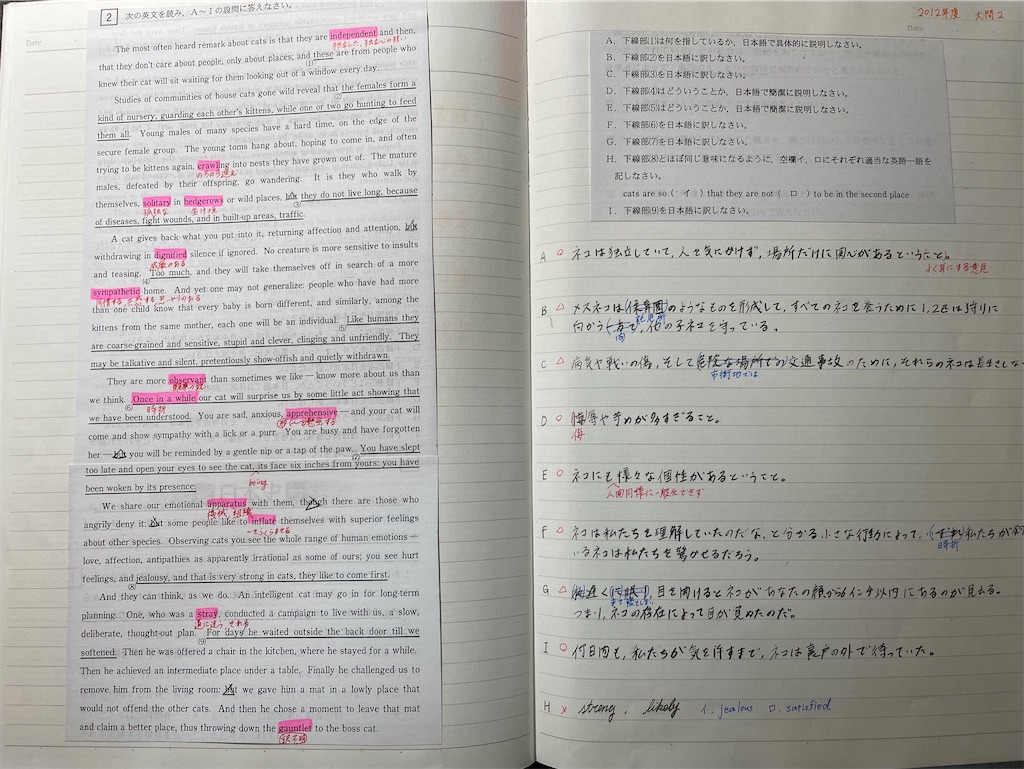 Date
2 次の英文を読み，A～Iの設問に答えなさい。
The most often heard remark about cats is that they are independent and then,
独立した，独立心の強い
that they don't care about people, only about places; and these are from people who
(1)
knew their cat will sit waiting for them looking out of a window every day.
Studies of communities of house cats gone wild reveal that the females form a
(2)
kind of nursery, guarding each other's kittens, while one or two go hunting to feed
them all. Young males of many species have a hard time, on the edge of the
secure female group. The young toms hang about, hoping to come in, and often
trying to be kittens again, crawling into nests they have grown out of. The mature
のろのろ進む
males, defeated by their offspring, go wandering. It is they who walk by
themselves, solitary in hedgerows or wild places, but they do not live long, because
孤独な 生け垣 (3)
of diseases, fight wounds, and in built-up areas, traffic.
A cat gives back what you put into it, returning affection and attention, but
withdrawing in dignified silence if ignored. No creature is more sensitive to insults
威厳のある
and teasing. Too much, and they will take themselves off in search of a more
(4)
sympathetic home. And yet one may not generalize: people who have had more
同情する 思いやりのある
than one child know that every baby is born different, and similarly, among the
kittens from the same mother, each one will be an individual. Like humans they
(5)
are coarse-grained and sensitive, stupid and clever, clinging and unfriendly. They
may be talkative and silent, pretentiously show-offish and quietly withdrawn.
They are more observant than sometimes we like — know more about us than
we think. Once in a while our cat will surprise us by some little act showing that
(6) 時折
we have been understood. You are sad, anxious, apprehensive — and your cat will
come and show sympathy with a lick or a purr. You are busy and have forgotten
her — but you will be reminded by a gentle nip or a tap of the paw. You have slept
(7)
too late and open your eyes to see the cat, its face six inches from yours: you have
being
been woken by its presence.
We share our emotional apparatus with them, though there are those who
器械，組織
angrily deny it. But some people like to inflate themselves with superior feelings
～をふくらませる
about other species. Observing cats you see the whole range of human emotions —
love, affection, antipathies as apparently irrational as some of ours; you see hurt
feelings, and jealousy, and that is very strong in cats, they like to come first.
(8)
And they can think, as we do. An intelligent cat may go in for long-term
planning. One, who was a stray, conducted a campaign to live with us, a slow,
道に迷う それる
deliberate, thought-out plan. For days he waited outside the back door till we
(9)
softened. Then he was offered a chair in the kitchen, where he stayed for a while.
Then he achieved an intermediate place under a table. Finally he challenged us to
remove him from the living room: but we gave him a mat in a lowly place that
would not offend the other cats. And then he chose a moment to leave that mat
and claim a better place, thus throwing down the gauntlet to the boss cat.
2012年度 大問2
Date
A．下線部(1)は何を指しているか，日本語で具体的に説明しなさい。
B．下線部(2)を日本語に訳しなさい。
C．下線部(3)を日本語に訳しなさい。
D．下線部(4)はどういうことか，日本語で簡潔に説明しなさい。
E．下線部(5)はどういうことか，日本語で簡潔に説明しなさい。
F．下線部(6)を日本語に訳しなさい。
G．下線部(7)を日本語に訳しなさい。
H．下線部(8)とほぼ同じ意味になるように，空欄イ，ロにそれぞれ適当な英語一語を
記しなさい。
cats are so ( イ ) that they are not ( ロ ) to be in the second place
I．下線部(9)を日本語に訳しなさい。
A ○ ネコは独立していて，人を気にかけず，場所だけに関心があるということ。
よく耳にする意見
B △ メスネコは(保育園)のようなものを形成して，すべてのネコを養うために1，2匹は狩りに
託児所
向かう一方で，他の子ネコを守っている。
間
C △ 病気や戦いの傷，そして危険な場所での交通事故のために，それらのネコは長生きしな
市街地では
D ○ 侮辱や苛めが多すぎること。
侮
E ○ ネコにも様々な個性があるということ。
人間同様に一般化できず
F △ ネコは私たちを理解していたのだな，と分かる小さな行動によって，私たちが
時折
いるネコは私たちを驚かせるだろう。
G △ 遅く 目を開けるとネコがあなたの顔から6インチ以内にあるのが見える。
まで寝てしまい
つまり，ネコの存在によって目が覚めたのだ。
I ○ 何日間も，私たちが気を許すまで，ネコは裏戸の外で待っていた。
H × strong， likely イ．jealous ロ．satisfied